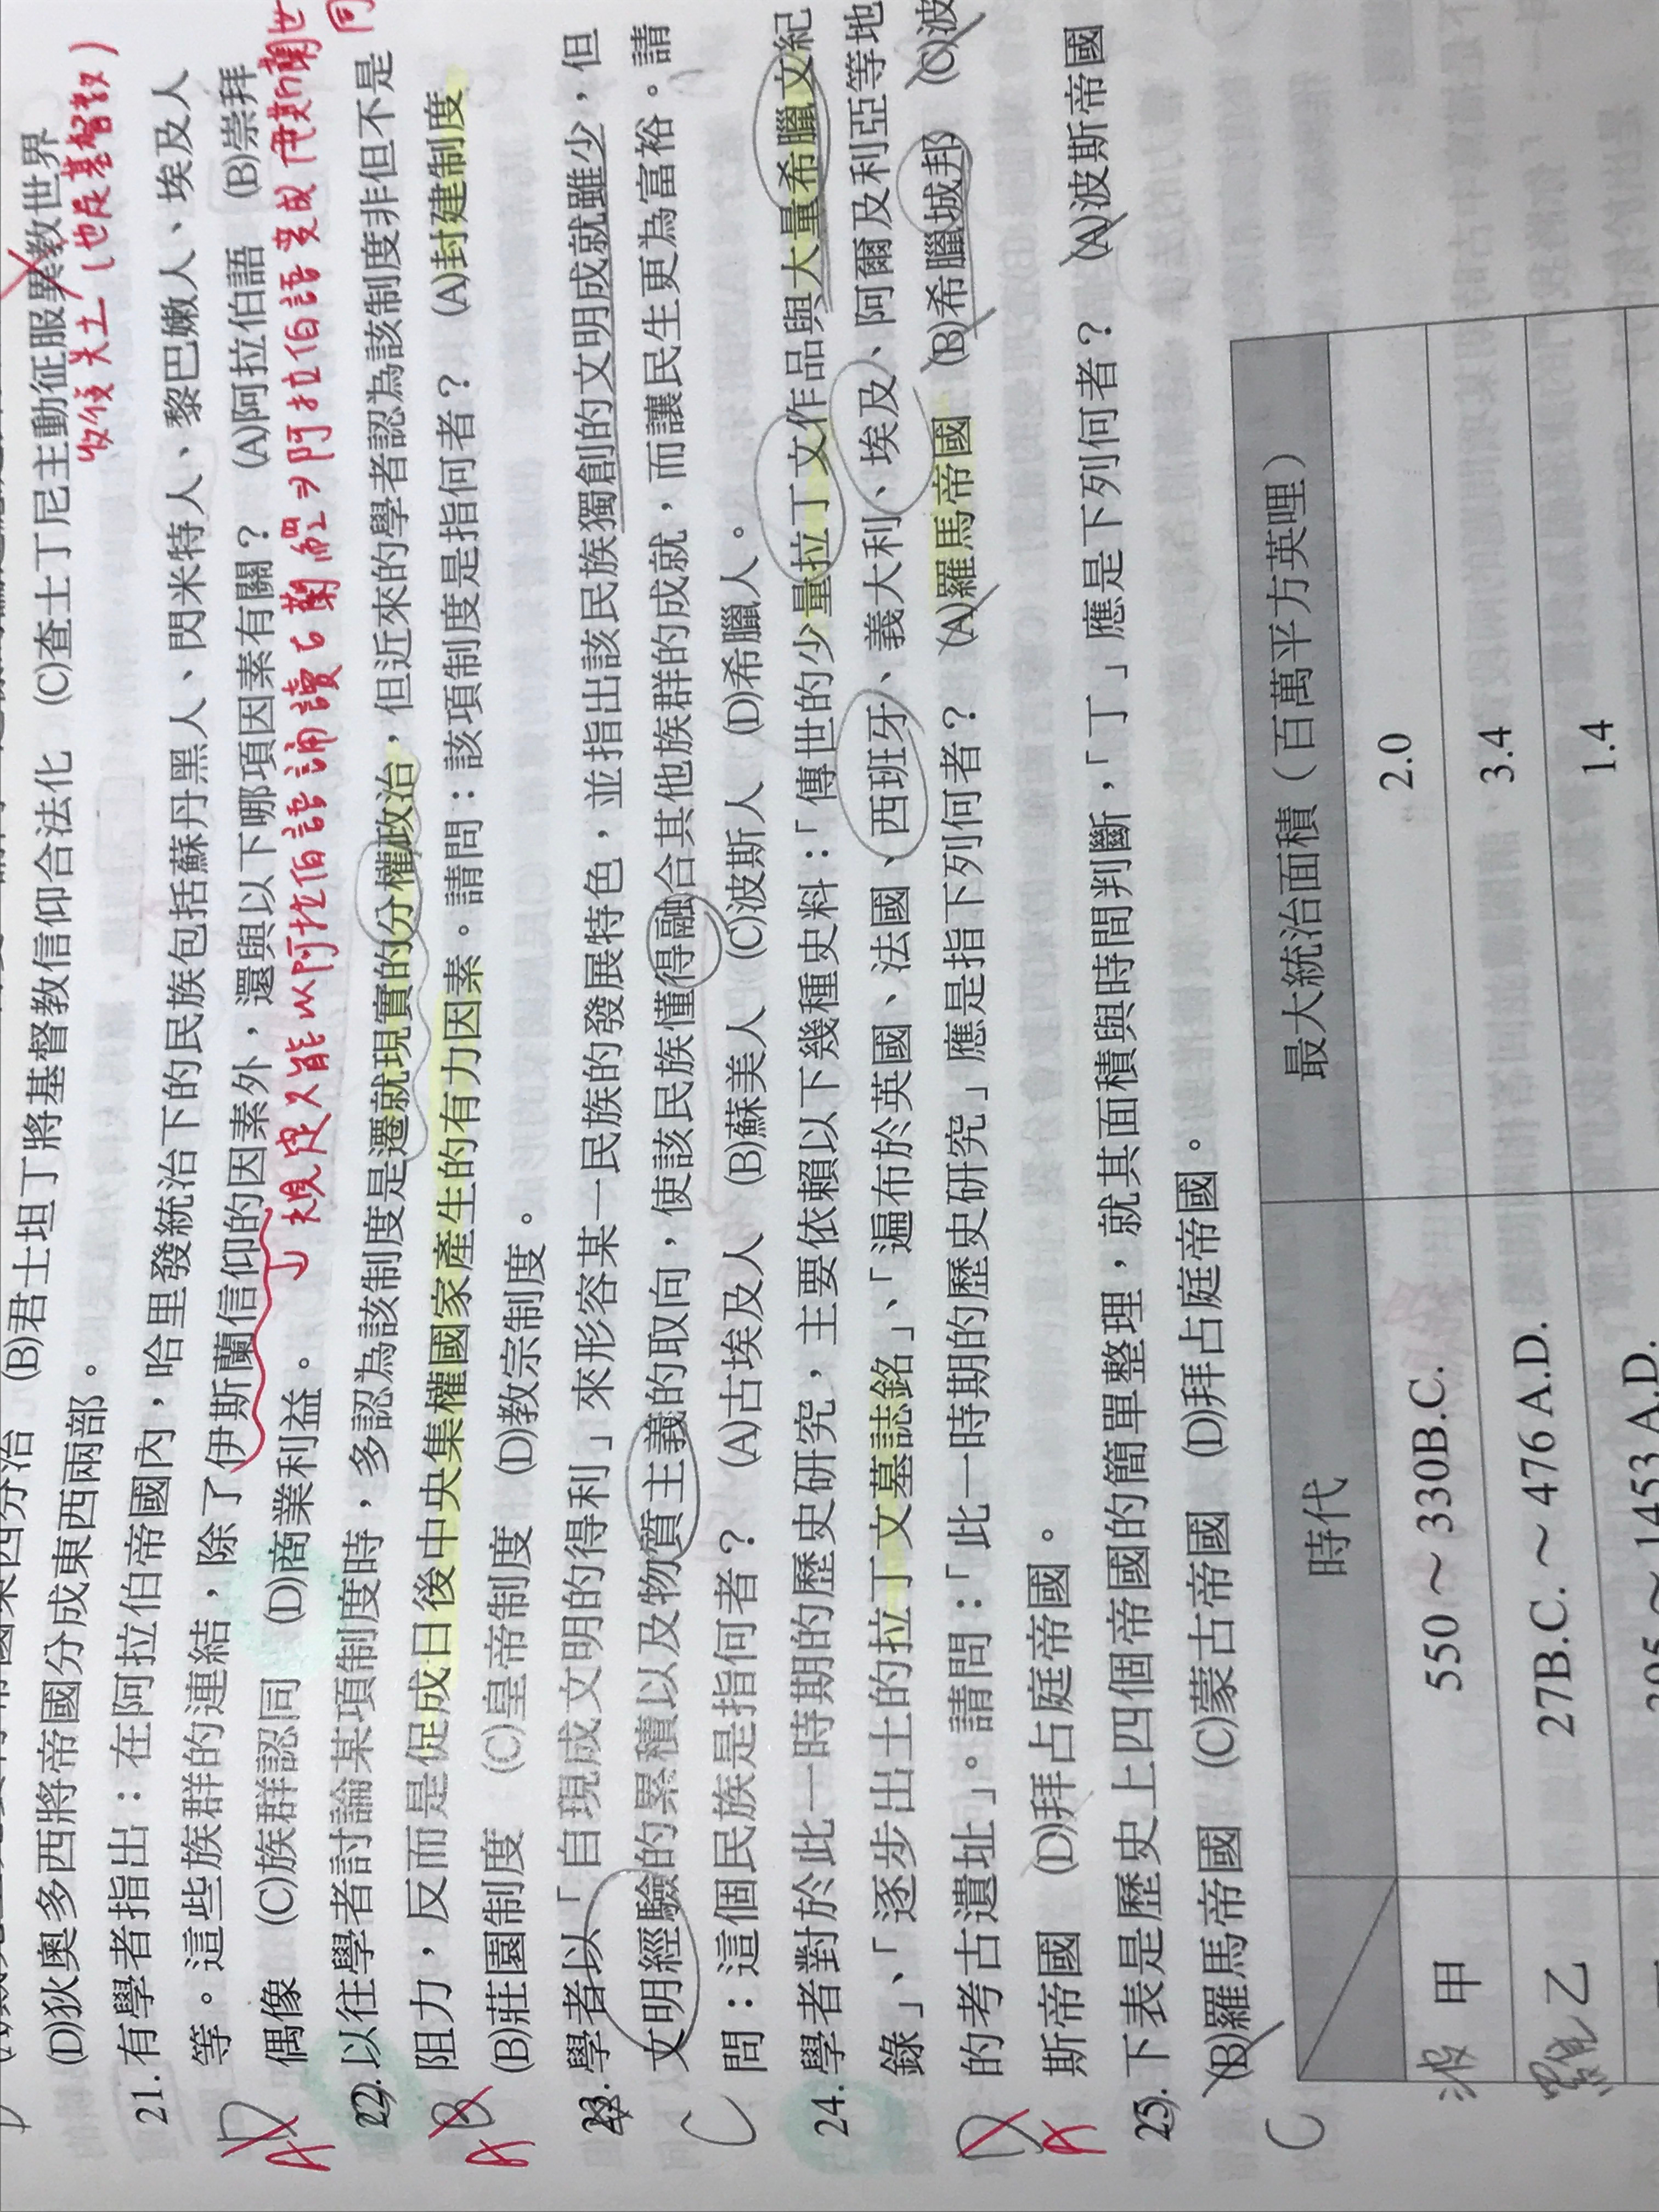 (B)君士坦丁將基督教信仰合法化 (C)查士丁尼主動征服異教世界
收復失土（也是基督教）
(D)狄奧多西將帝國分成東西兩部。
21.有學者指出：在阿拉伯帝國內，哈里發統治下的民族包括蘇丹黑人、閃米特人、黎巴嫩人、埃及人
等。這些族群的連結，除了伊斯蘭信仰的因素外，還與以下哪項因素有關？ (A)阿拉伯語 (B)崇拜
偶像 (C)族群認同 (D)商業利益。
規定只能以阿拉伯語誦讀古蘭經→阿拉伯語變成伊斯蘭世
AD
22.以往學者討論某項制度時，多認為該制度是遷就現實的分權政治，但近來的學者認為該制度非但不是
阻力，反而是促成日後中央集權國家產生的有力因素。請問：該項制度是指何者？ (A)封建制度
(B)莊園制度 (C)皇帝制度 (D)教宗制度。
AB
23.學者以「自現成文明的得利」來形容某一民族的發展特色，並指出該民族獨創的文明成就雖少，但
文明經驗的累積以及物質主義的取向，使該民族懂得融合其他族群的成就，而讓民生更為富裕。請
問：這個民族是指何者？ (A)古埃及人 (B)蘇美人 (C)波斯人 (D)希臘人。
C
24.學者對於此一時期的歷史研究，主要依賴以下幾種史料：「傳世的少量拉丁文作品與大量希臘文紀
錄」、「逐步出土的拉丁文墓誌銘」、「遍布於英國、法國、西班牙、義大利、埃及、阿爾及利亞等地
的考古遺址」。請問：「此一時期的歷史研究」應是指下列何者？ (A)羅馬帝國 (B)希臘城邦 (C)波
斯帝國 (D)拜占庭帝國。
D
A
25.下表是歷史上四個帝國的簡單整理，就其面積與時間判斷，「丁」應是下列何者？ (A)波斯帝國
(B)羅馬帝國 (C)蒙古帝國 (D)拜占庭帝國。
C
時代 最大統治面積（百萬平方英哩）
波 甲 550～330B.C. 2.0
羅 乙 27B.C.～476A.D. 3.4
395～1453A.D. 1.4